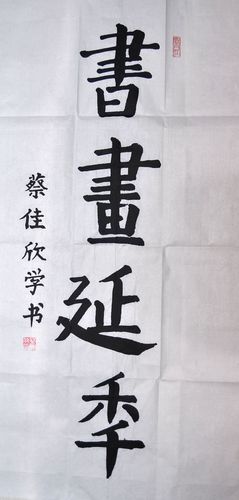 書畫延秊
蔡佳欣学书